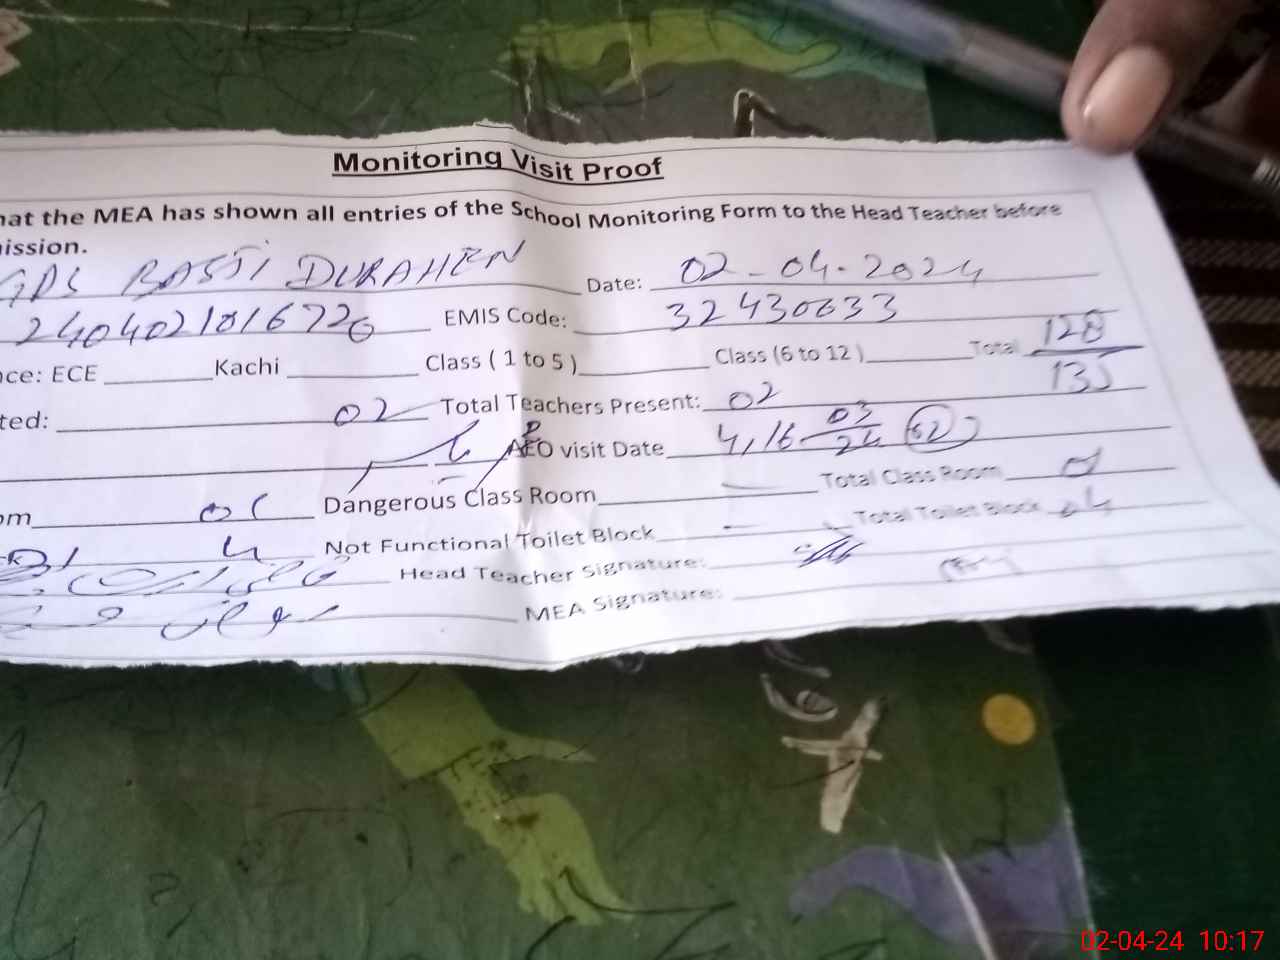 Monitoring Visit Proof
hat the MEA has shown all entries of the School Monitoring Form to the Head Teacher before
ission.
GPS BASTI DURAHEN Date: 02-04-2024
EMIS Code: 32430633
nce: ECE Kachi Class ( 1 to 5 ) Class (6 to 12 ) Total 128
135
ted: 02 Total Teachers Present: 02
AEO visit Date 4,16 03/24 (02)
om 01 Dangerous Class Room Total Class Room
4 Not Functional Toilet Block Total Toilet Block 04
Head Teacher Signature:
MEA Signature:
02-04-24 10:17